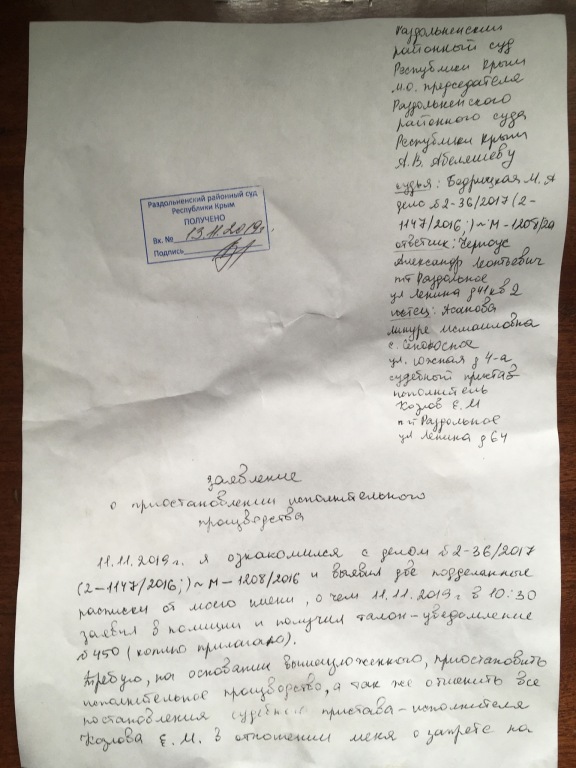 Раздольненский
районный суд
Республики Крым
И.О. председателя
Раздольненского
районного суда
Республики Крым
А.В. Абелешеву
судья: Бедрицкая М. А
дело №2-36/2017 (2-
1147/2016;)~М-1208/20
ответчик: Черноус
Александр Леонтьевич
пгт Раздольное
ул Ленина д 41 кв 2
истец: Асанова
Линуре Исмаиловна
с. Сенокосное
ул. Южная д 4-а
судебный пристав
исполнитель
Козлов Е.М
пгт Раздольное
ул Ленина д 64
Раздольненский районный суд
Республики Крым
ПОЛУЧЕНО
Вх. № 13.11.2019г.
Подпись
Заявление
о приостановлении исполнительного
производства
11.11.2019г. я ознакомился с делом №2-36/2017
(2-1147/2016;)~М-1208/2016 и выявил две подделанные
расписки от моего имени, о чем 11.11.2019г в 10:30
заявил в полицию и получил талон-уведомление
№450 (копию прилагаю).
Требую, на основании вышеизложенного, приостановить
исполнительное производство, а так же отменить все
постановления судебного пристава-исполнителя
Козлова Е.М. в отношении меня о запрете на